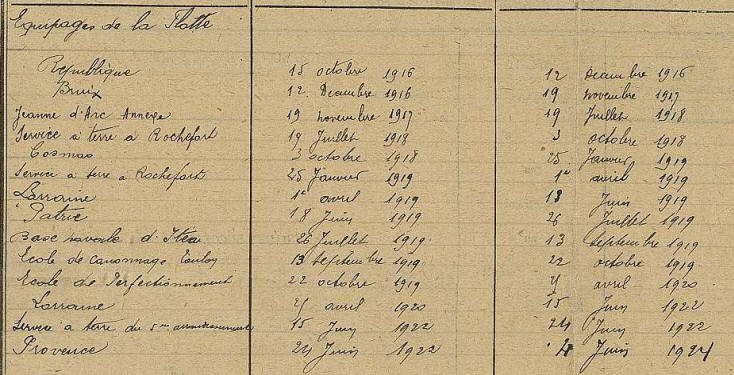 Equipages de la Flotte
République 15 octobre 1916 12 Décembre 1916
Bruix 12 Décembre 1916 19 novembre 1917
Jeanne d'Arc Annexe 19 novembre 1917 19 Juillet 1918
Service à terre à Rochefort 19 Juillet 1918 3 octobre 1918
Cosmao 3 octobre 1918 25 Janvier 1919
Service à terre à Rochefort 25 Janvier 1919 1er avril 1919
Lorraine 1er avril 1919 18 Juin 1919
Patrie 18 Juin 1919 26 Juillet 1919
Base navale d'Itea 26 Juillet 1919 13 septembre 1919
Ecole de canonnage Toulon 13 septembre 1919 22 octobre 1919
Ecole de Perfectionnement 22 octobre 1919 avril 1920
Lorraine avril 1920 15 Juin 1922
Service à terre du 5me arrondissement 15 Juin 1922 24 Juin 1922
Provence 24 Juin 1922 4 Juin 1924